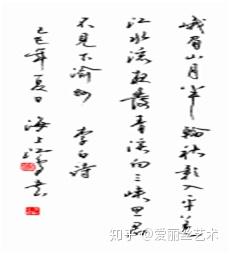 峨眉山月半輪秋影入平羌
江水流夜發清溪向三峡思君
不見下渝州 李白詩
己巳年夏日 海上
知乎 @爱丽丝艺术